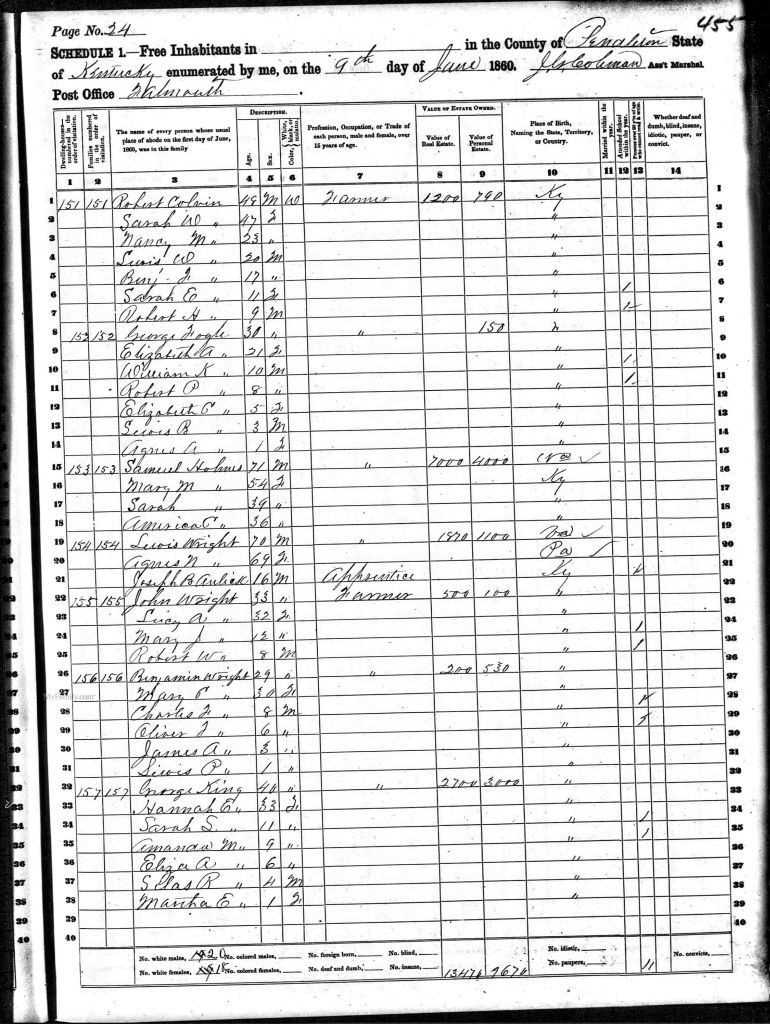 455
Page No. 24
SCHEDULE 1.—Free Inhabitants in in the County of Pendleton State
of Kentucky enumerated by me, on the 9th day of June 1860. Ass't Marshal.
Post Office Falmouth
Dwelling-houses— numbered in the order of visitation.
Families numbered in the order of visitation.
The name of every person whose usual place of abode on the first day of June, 1860, was in this family
DESCRIPTION.
Age. Sex. Color, White, black, or mulatto.
Profession, Occupation, or Trade of each person, male and female, over 15 years of age.
VALUE OF ESTATE OWNED.
Value of Real Estate. Value of Personal Estate.
Place of Birth, Naming the State, Territory, or Country.
Married within the year.
Attended School within the year.
Whether deaf and dumb, blind, insane, idiotic, pauper, or convict.
1 2 3 4 5 6 7 8 9 10 11 12 13 14
1 151 151 Robert Colvin 48 M W Farmer 1200 790 Ky 1
2 Sarah W " 47 F " 2
3 Nancy M " 23 " " 3
4 Lewis W " 20 M " 4
5 Benj. F " 17 " " 5
6 Sarah E " 11 F " 1 6
7 Robert H " 9 M " 1 7
8 152 152 George Fogle 30 " " 150 " 8
9 Elizabeth A " 21 F " 9
10 William K " 10 M " 1 10
11 Robert P " 8 " " 1 11
12 Elizabeth C " 5 F " 12
13 Lewis B " 3 M " 13
14 Agnes A " 1 F " 14
15 153 153 Samuel Holmes 71 M " 7000 4000 Va ✓ 15
16 Mary M " 54 F Ky 16
17 Sarah " 39 " " 17
18 America C " 36 " " 18
19 154 154 Lewis Wright 70 M " 1870 1100 Va ✓ 19
20 Agnes N " 69 F Pa ✓ 20
21 Joseph B Aulick 16 M Apprentice Ky 21
22 155 155 John Wright 33 " Farmer 500 100 " 22
23 Lucy A " 32 F " 23
24 Mary J " 12 " " 1 24
25 Robert W " 8 M " 1 25
26 156 156 Benjamin Wright 29 " " 200 530 " 26
27 Mary C " 30 F " 27
28 Charles F " 8 M " 28
29 Oliver T " 6 " " 29
30 James A " 3 " " 30
31 Lewis P " 1 " " 31
32 157 157 George King 40 " " 2700 3000 " 32
33 Hannah E " 33 F " 33
34 Sarah S " 11 " " 1 34
35 Amanda M " 9 " " 1 35
36 Eliza A " 6 " " 36
37 Silas R " 4 M " 37
38 Martha E " 1 F " 38
39 39
40 40
No. white males, 20 No. colored males, No. foreign born, No. blind, No. idiotic, No. convicts,
No. white females, 18 No. colored females, No. deaf and dumb, No. insane, 13470 9670 No. paupers, 11
MyFamily.com